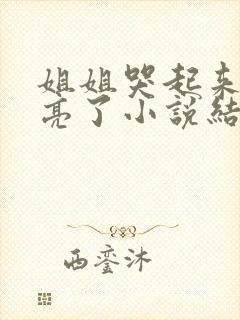 姐姐哭起来
亮了小說結
西銮沐